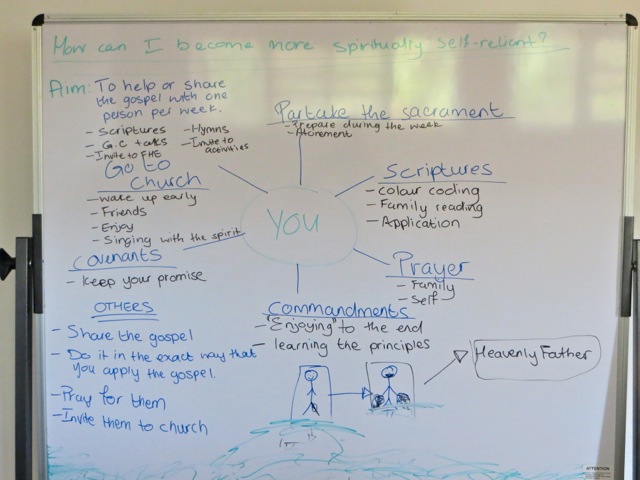 How can I become more spiritually self-relient?
Aim: To help or share
the gospel with one
person per week.
- Scriptures - Hymns
- G.C talks - Invite to
activities
- Invite to FHE
Partake the sacrament
- Prepare during the week
- Atonement
Go to
Church
- wake up early
- Friends
- Enjoy
- Singing with the spirit
YOU
Scriptures
- colour coding
- Family reading
- Application
Covenants
- Keep your promise
Prayer
- Family
- Self
Commandments
- "Enjoying" to the end
- learning the principles
OTHERS
- Share the gospel
- Do it in the exact way that
you apply the gospel.
- Pray for them
- Invite them to church
Heavenly Father
ATTENTION